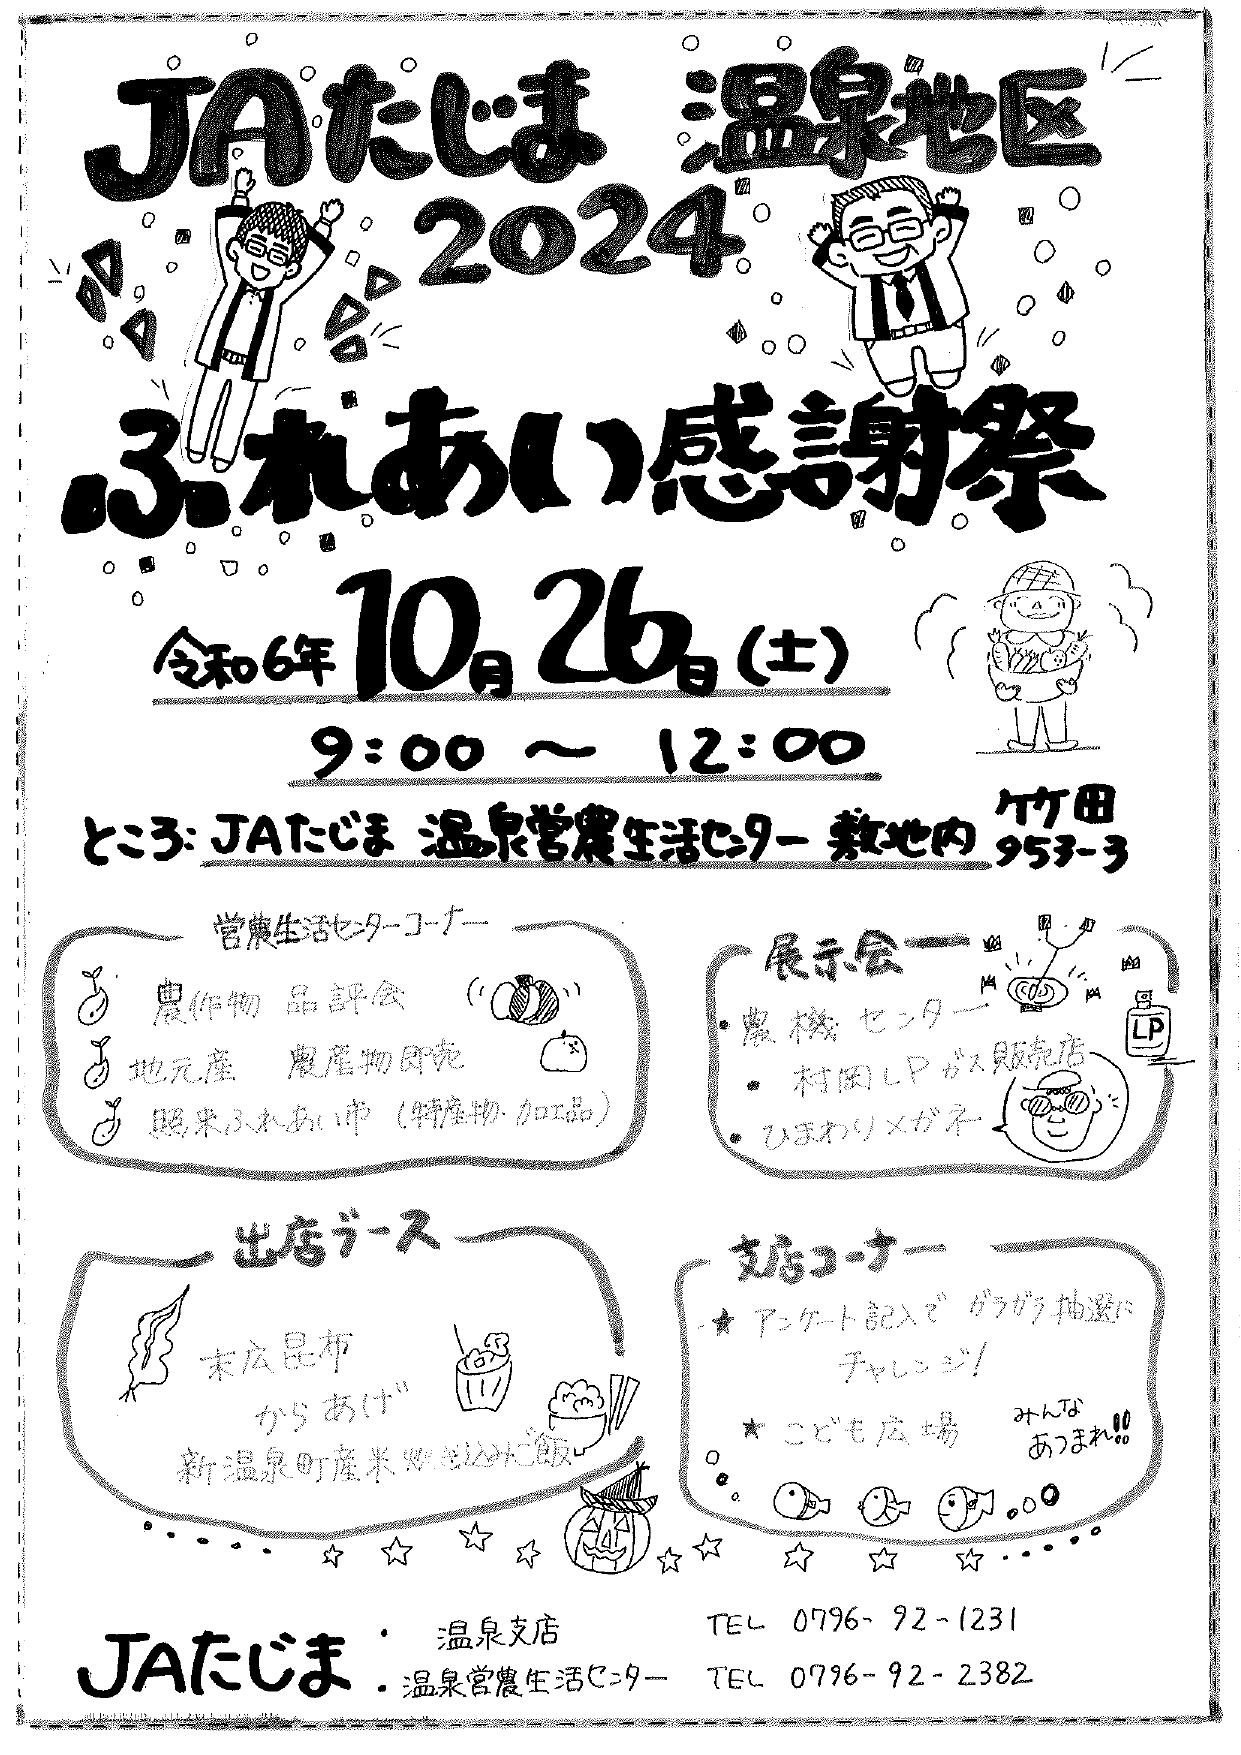 JAたじま 温泉地区
2024
ふれあい感謝祭
令和6年 10月 26日 (土)
9:00 ～ 12:00
ところ: JAたじま 温泉営農生活センター 敷地内 竹田
953-3
営農生活センターコーナー
農作物 品評会
地元産 農産物即売
照来ふれあい市 (特産物・加工品)
展示会
・農機センター
・村岡LPガス販売店
LP
・ひまわりメガネ
出店ブース
末広昆布
からあげ
新温泉町産米 炊き込みご飯
支店コーナー
★ アンケート記入で ガラガラ抽選に
チャレンジ!
★ こども広場
みんな
あつまれ!!
JAたじま
・ 温泉支店 TEL 0796-92-1231
・温泉営農生活センター TEL 0796-92-2382